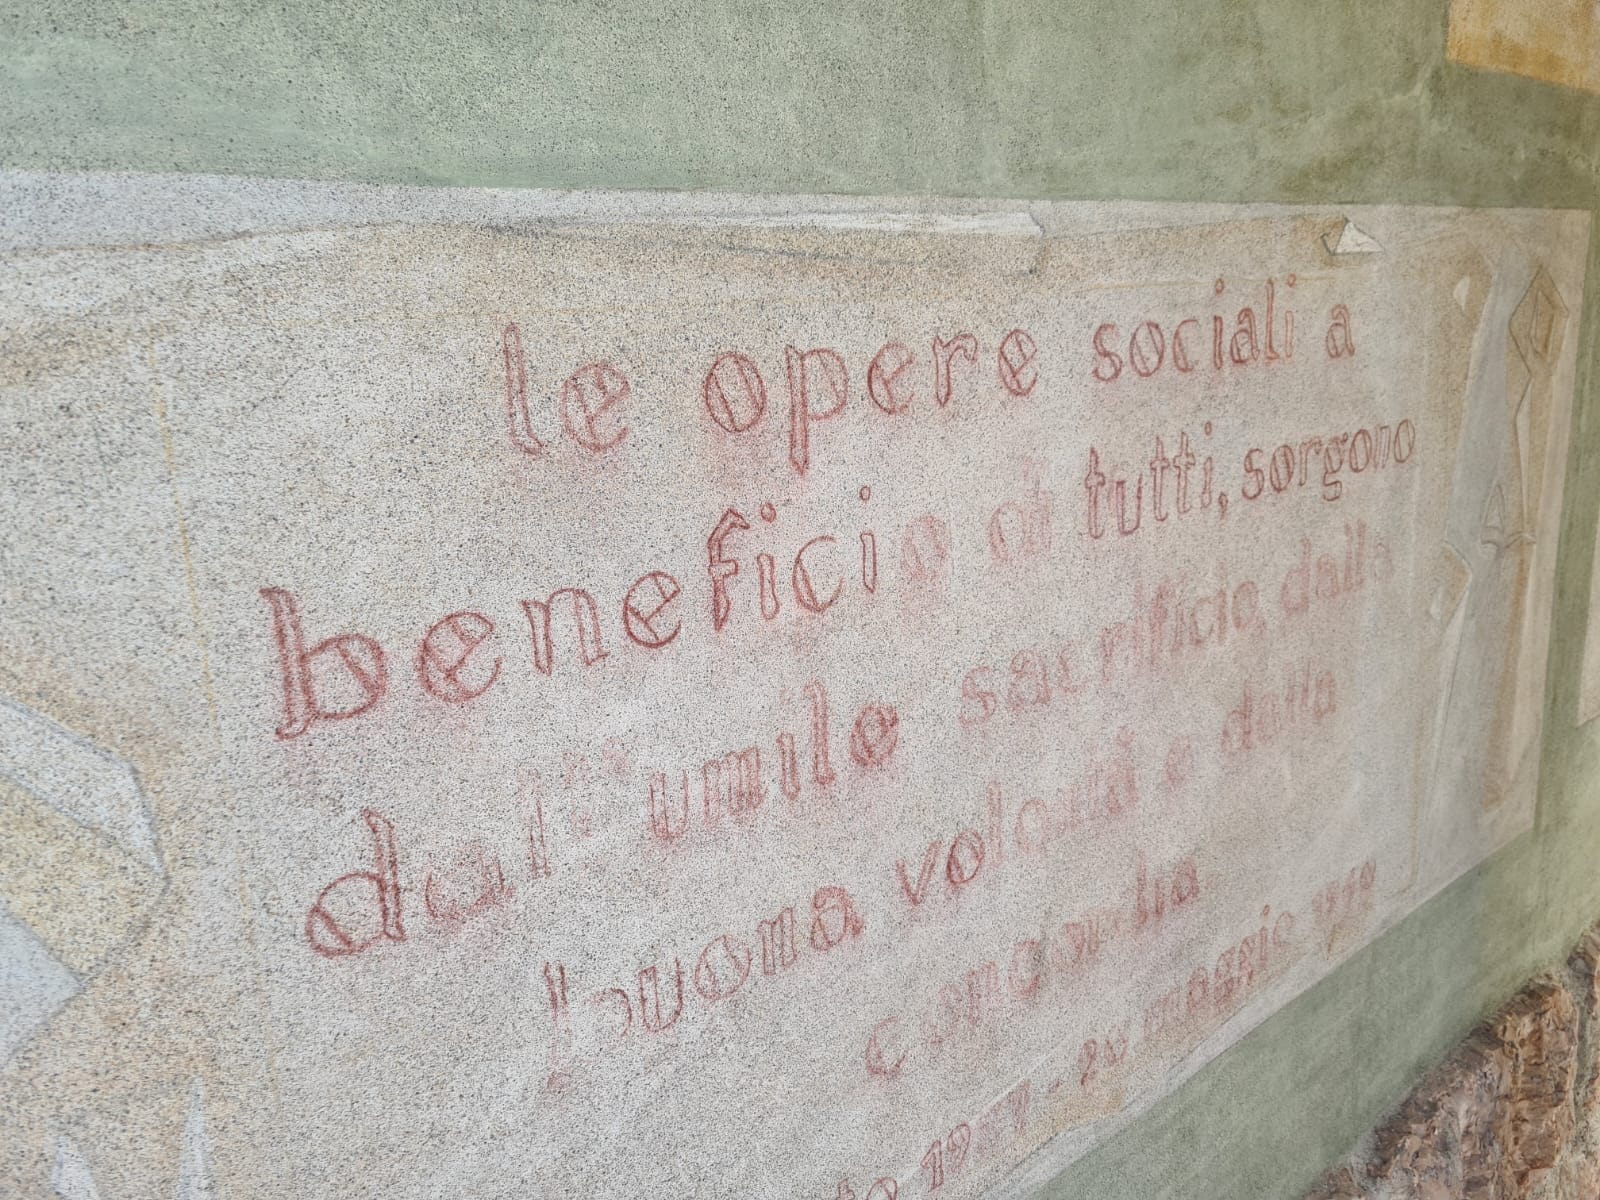 le opere sociali a
beneficio di tutti, sorgono
dall'umile sacrificio, dalla
buona volontà e dalla
concordia
maggio